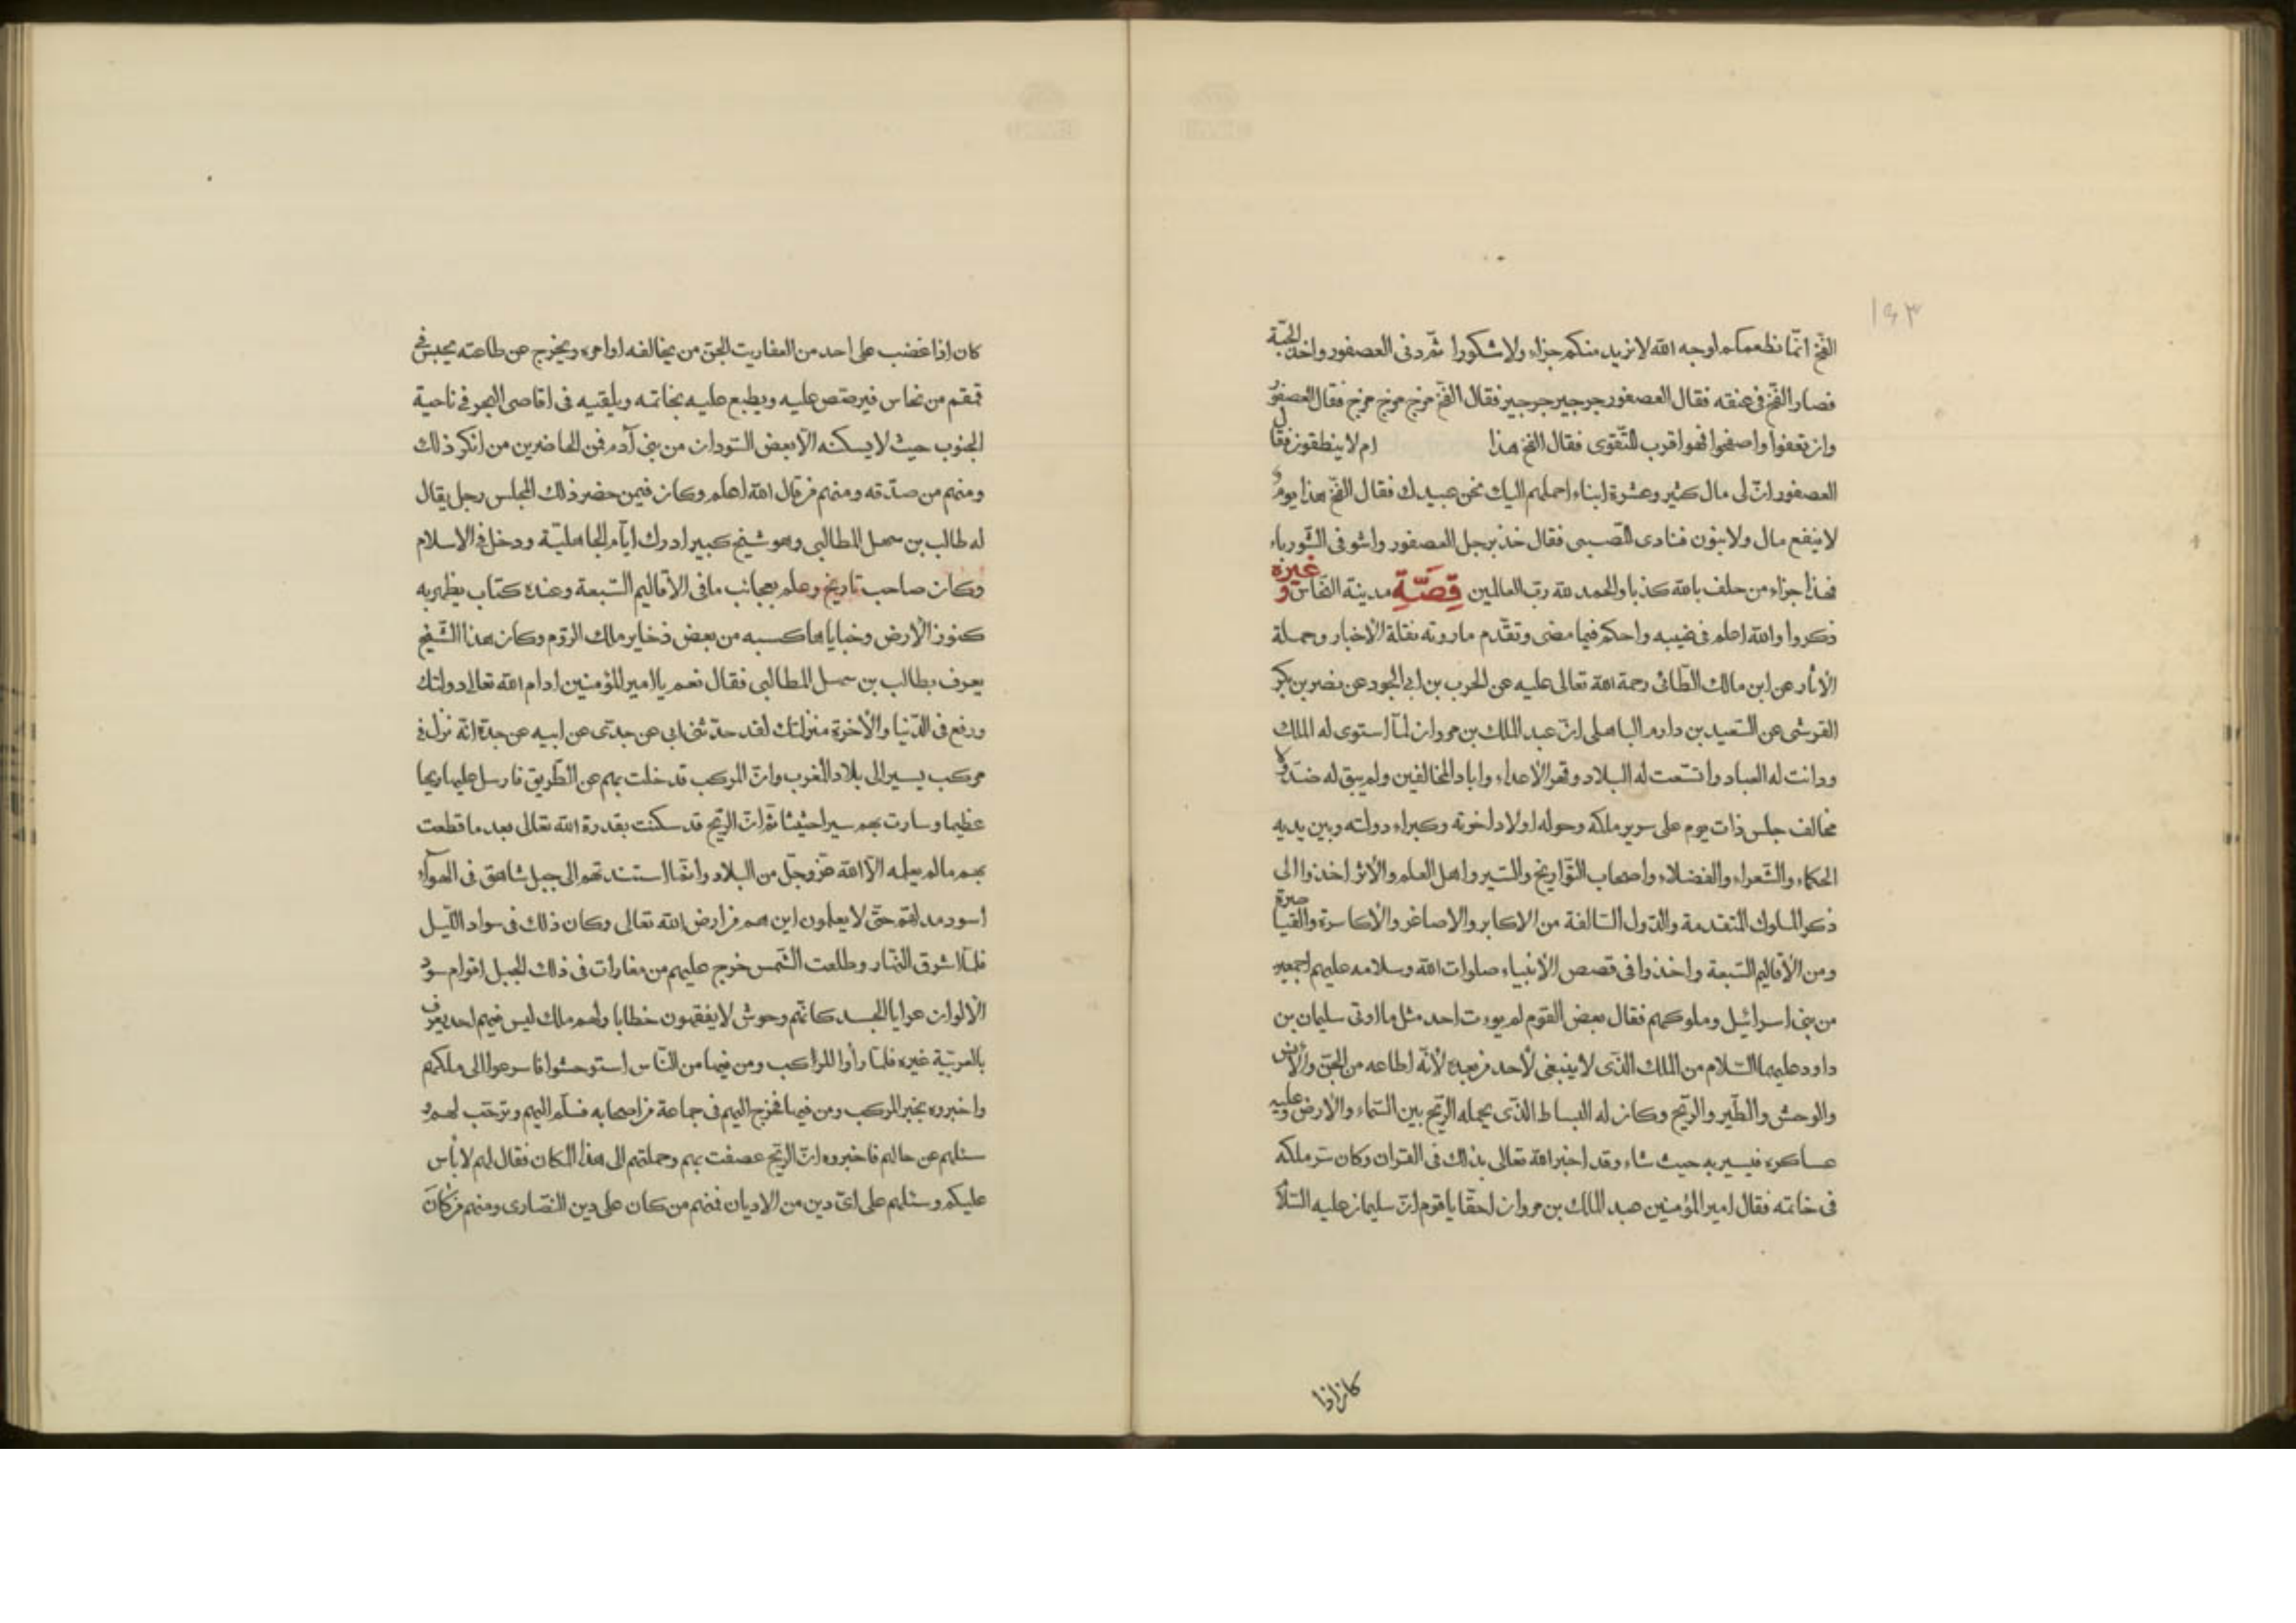 ١٩٣
الفخ انما نطعمكم لوجه الله لا نريد منكم جزاء ولا شكورا ثم دنى العصفور واخذ الحبة
فصار الفخ فى عنقه فقال العصفور جرجير جرجير فقال الفخ مزخ مزخ مزخ فقال العصفور
وان تعفوا واصفحوا فهو اقرب للتقوى فقال الفخ هذا ام لا ينطقون فقال
العصفور ان لى مال كثير وعشرة ابناء احملهم اليك نحن عبيدك فقال الفخ هذا يوم
لا ينفع مال ولا بنون فنادى الصبى فقال خذ برجل العصفور واشو فى
فهذا جزاء من حلف بالله كذبا والحمد لله رب العالمين قِصَّةِ مدينة النحاس وغيره
ذكروا والله اعلم فى غيبه واحكم فيما مضى وتقدم ما روته نقلة الاخبار وحملة
الأثار عن ابن مالك الطائى رحمة الله تعالى عليه عن الحرب بن ابى الجود عن نضر بن بكر
القرشى عن السعيد بن دارم الباهلى ان عبد الملك بن مروان لما استوى له الملك
ودانت له العباد واتسعت له البلاد وقهر الأعداء واباد المخالفين ولم يبق له ضد ولا
مخالف جلس ذات يوم على سرير ملكه وحوله اولاد اخوته وكبراء دولته وبين يديه
الحكماء والشعراء والفضلاء واصحاب التواريخ والسير واهل العلم والأثر اخذوا الى
ذكر الملوك المتقدمة والدول السالفة من الاكابر والاصاغر والأكاسرة والقياصرة
ومن الأقاليم السبعة واخذوا فى قصص الأنبياء صلوات الله وسلامه عليهم اجمعين
من بنى اسرائيل وملوكهم فقال بعض القوم لم يوءت احد مثل ما اوتى سليمان بن
داود عليهما السلام من الملك الذى لا ينبغى لأحد من بعده لأنه اطاعه من الجن والأنس
والوحش والطير والريح وكان له البساط الذى يحمله الريح بين السماء والارض وعليه
عساكره فيسير به حيث شاء وقد اخبر الله تعالى بذلك فى القران وكان سر ملكه
فى خاتمه فقال امير المؤمنين عبد الملك بن مروان احقا يا قوم ان سليمان عليه السلا
كان اذا
كان اذا غضب على احد من العفاريت الجن من يخالفه اوامره ويخرج عن طاعته يحبس فى
قمقم من نحاس فيرصص عليه ويطبع عليه بخاتمه ويلقيه فى اقاصى البحر فى ناحية
الجنوب حيث لا يسكنه الا بعض السودان من بنى آدم فمن الحاضرين من انكر ذلك
ومنهم من صدقه ومنهم من قال الله اعلم وكان فيمن حضر ذلك المجلس رجل يقال
له طالب بن سهل المطالبى وهو شيخ كبير ادرك ايام الجاهلية ودخل فى الاسلام
وكان صاحب تاريخ وعلم بعجائب ما فى الأقاليم السبعة وعنده كتاب يظهر به
كنوز الأرض وخباياها كسبه من بعض ذخاير ملك الروم وكان هذا الشيخ
يعرف بطالب بن سهل المطالبى فقال نعم يا امير المؤمنين ادام الله تعالى دولتك
ورفع فى الدنيا والأخرة منزلتك لقد حدثنى ابى عن جدى عن ابيه عن جده انه نزل فى
مركب يسير الى بلاد المغرب وان المركب قد خلت بهم عن الطريق فارسل عليها ريحا
عظيما وسارت بهم سيرا حثيثا ثم ان الريح قد سكنت بقدرة الله تعالى بعد ما قطعت
بهم ما لم يعلمه الا الله عز وجل من البلاد وانها استندتهم الى جبل شاهق فى الهوآء
اسود حتى لا يعلمون اين هم من ارض الله تعالى وكان ذلك فى سواد الليل
فلما اشرق النهار وطلعت الشمس خرج عليهم من مغارات فى ذلك الجبل اقوام سود
الألوان عرايا الجسد كانهم وحوش لا يفقهون خطابا ولهم ملك ليس فيهم احد يعرف
بالعربية غيره فلما رأوا المراكب ومن فيها من الناس استوحشوا فاسرعوا الى ملكهم
واخبروه بخبر المركب ومن فيها فخرج اليهم فى جماعة من اصحابه فسلم اليهم وترحب لهم و
سئلهم عن حالهم فاخبروه ان الريح عصفت بهم وحملتهم الى هذا المكان فقال لهم لا بأس
عليكم وسئلهم على اى دين من الاديان فمنهم من كان على دين النصارى ومنهم من كان